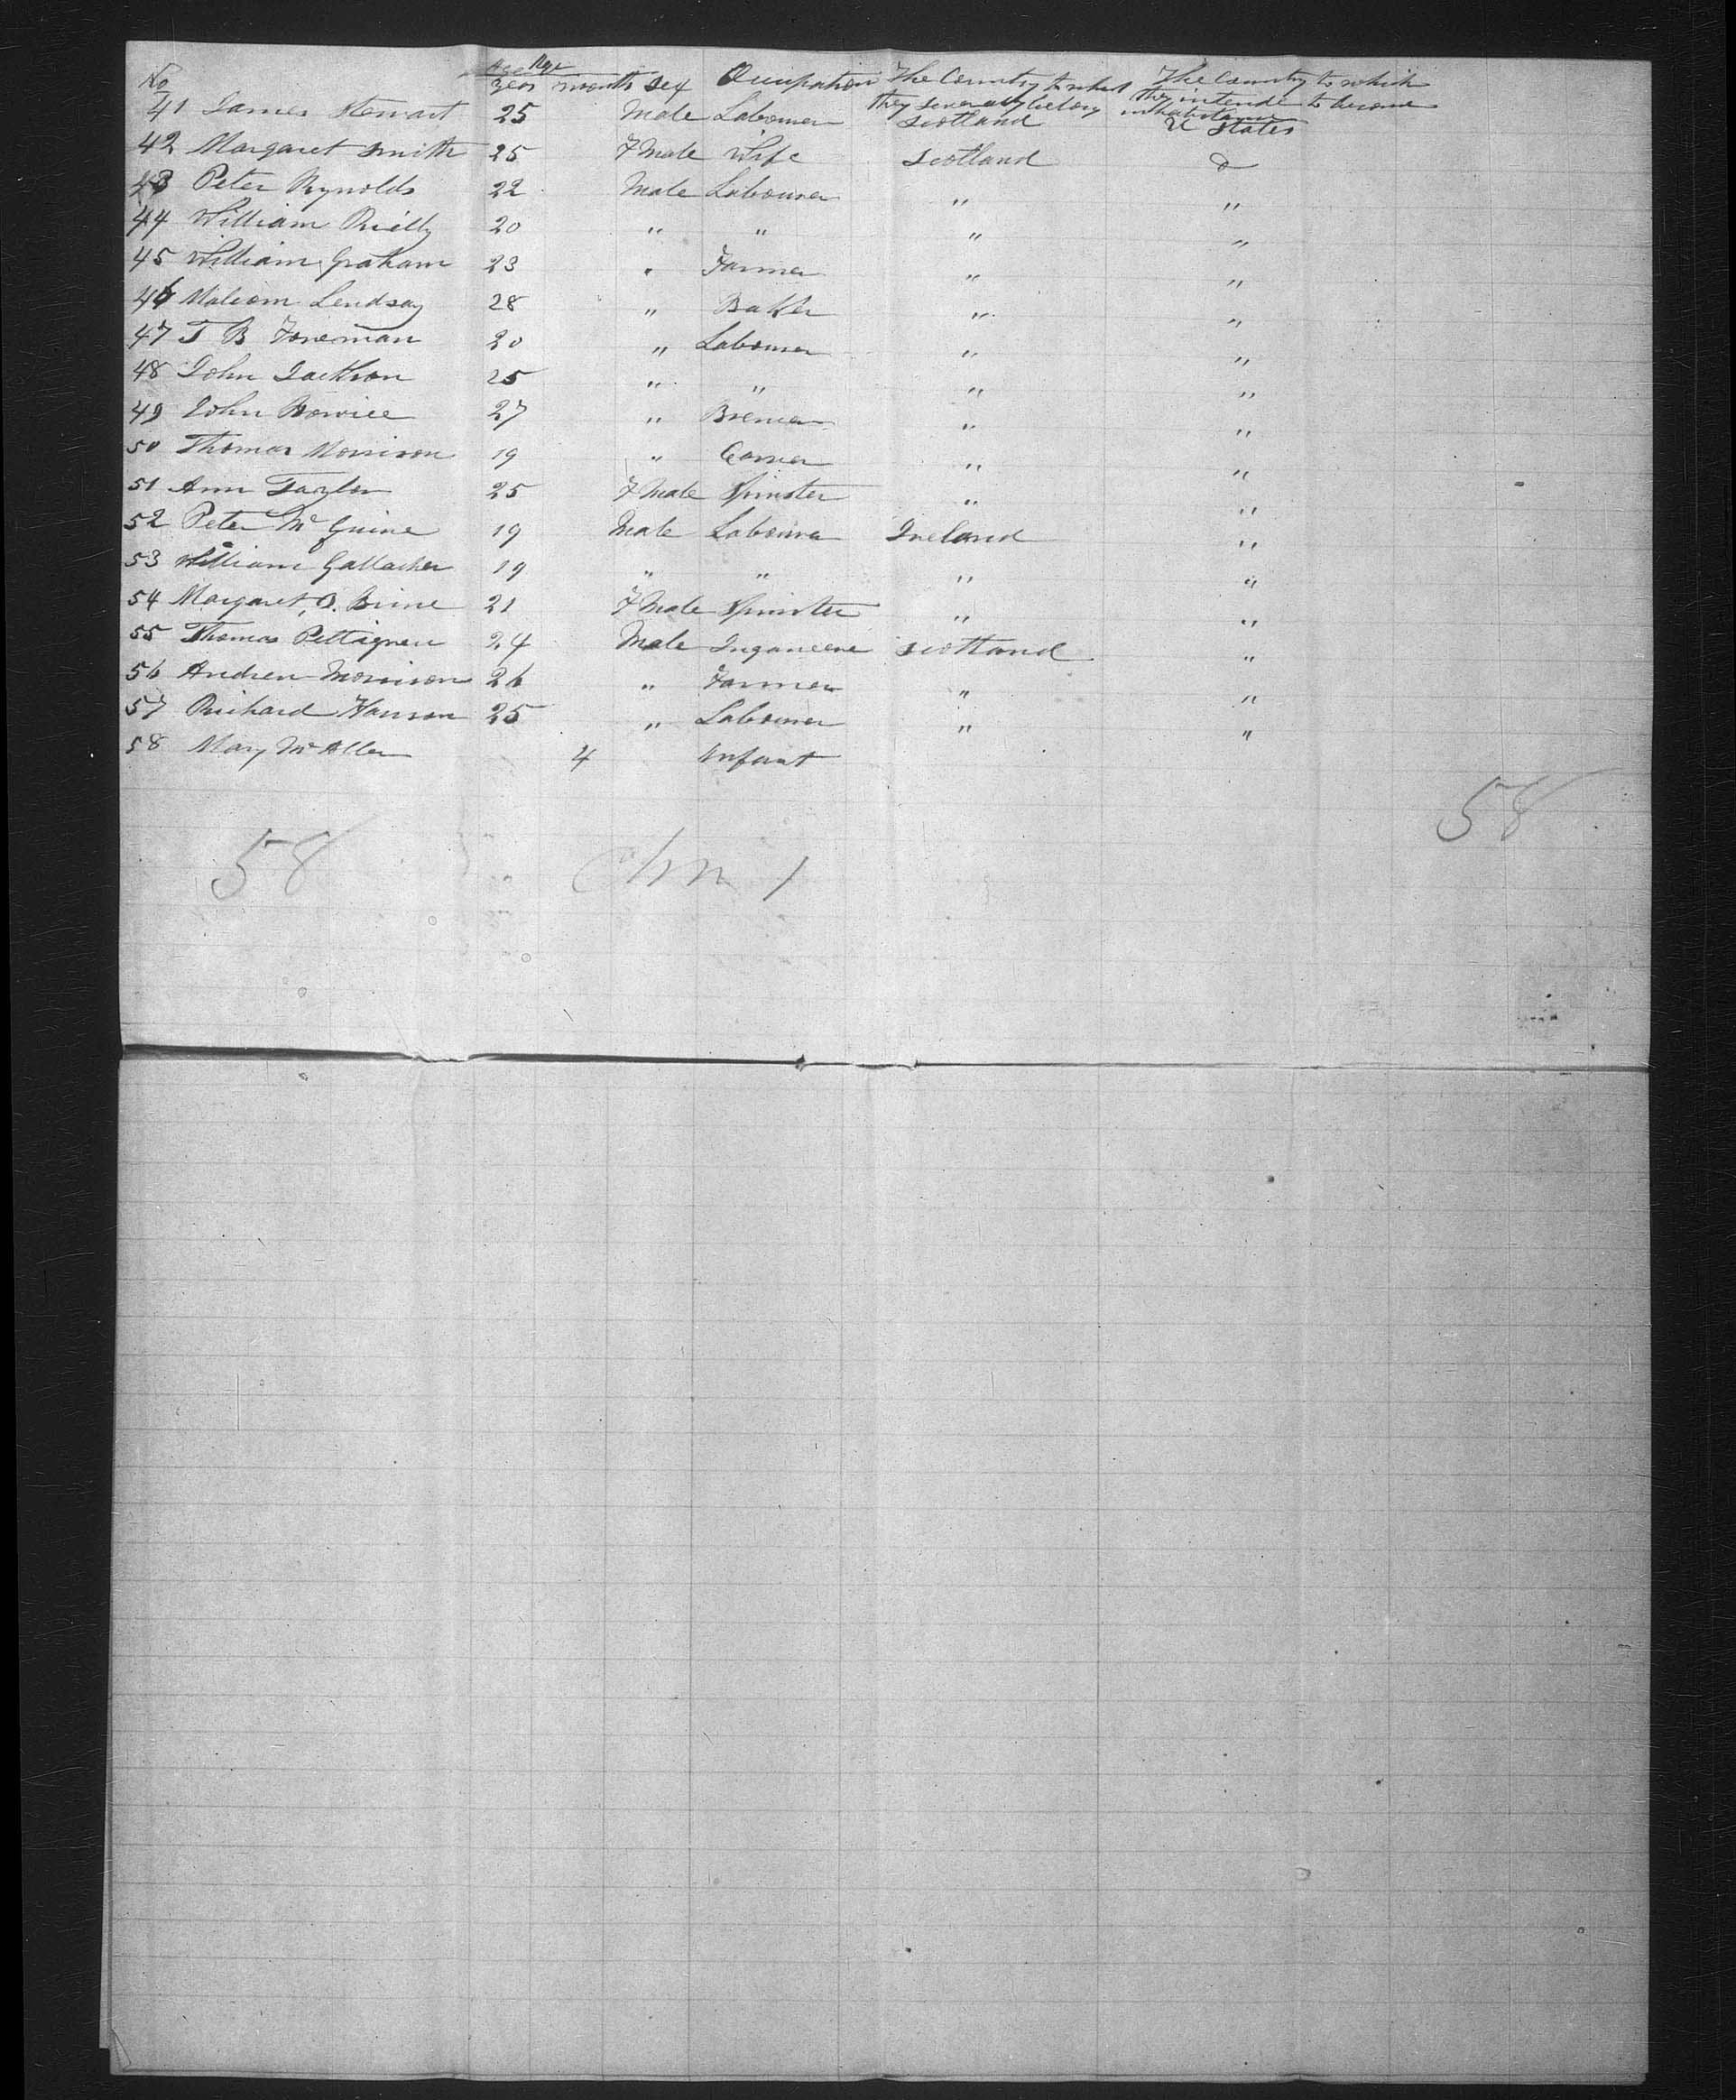 No Age Years Months Sex Occupation The Country to which they severally belong The Country to which they intende to become inhabitants
41 James Stewart 25 Male Labourer Scotland U States
42 Margaret Smith 25 FMale Wife Scotland do
43 Peter Rynolds 22 Male Labourer " "
44 William Rielly 20 " " " "
45 William Graham 23 " Farmer " "
46 Malcom Lendsay 28 " Baker " "
47 J B Foreman 20 " Labourer " "
48 John Jackson 25 " " " "
49 John Bowiee 27 " " "
50 Thomas Morrison 19 " " "
51 Ann Taylor 25 FMale Spinster " "
52 Peter McGuine 19 Male Labourer Ireland "
53 William Gallacher 19 " " " "
54 Margaret O. Birne 21 FMale Spinster " "
55 Thomas Pettigrew 24 Male Scotland "
56 Andrew Morrison 26 " Farmer " "
57 Richard Hanson 25 " Labourer " "
58 Mary McAller 4 Infant
58
58